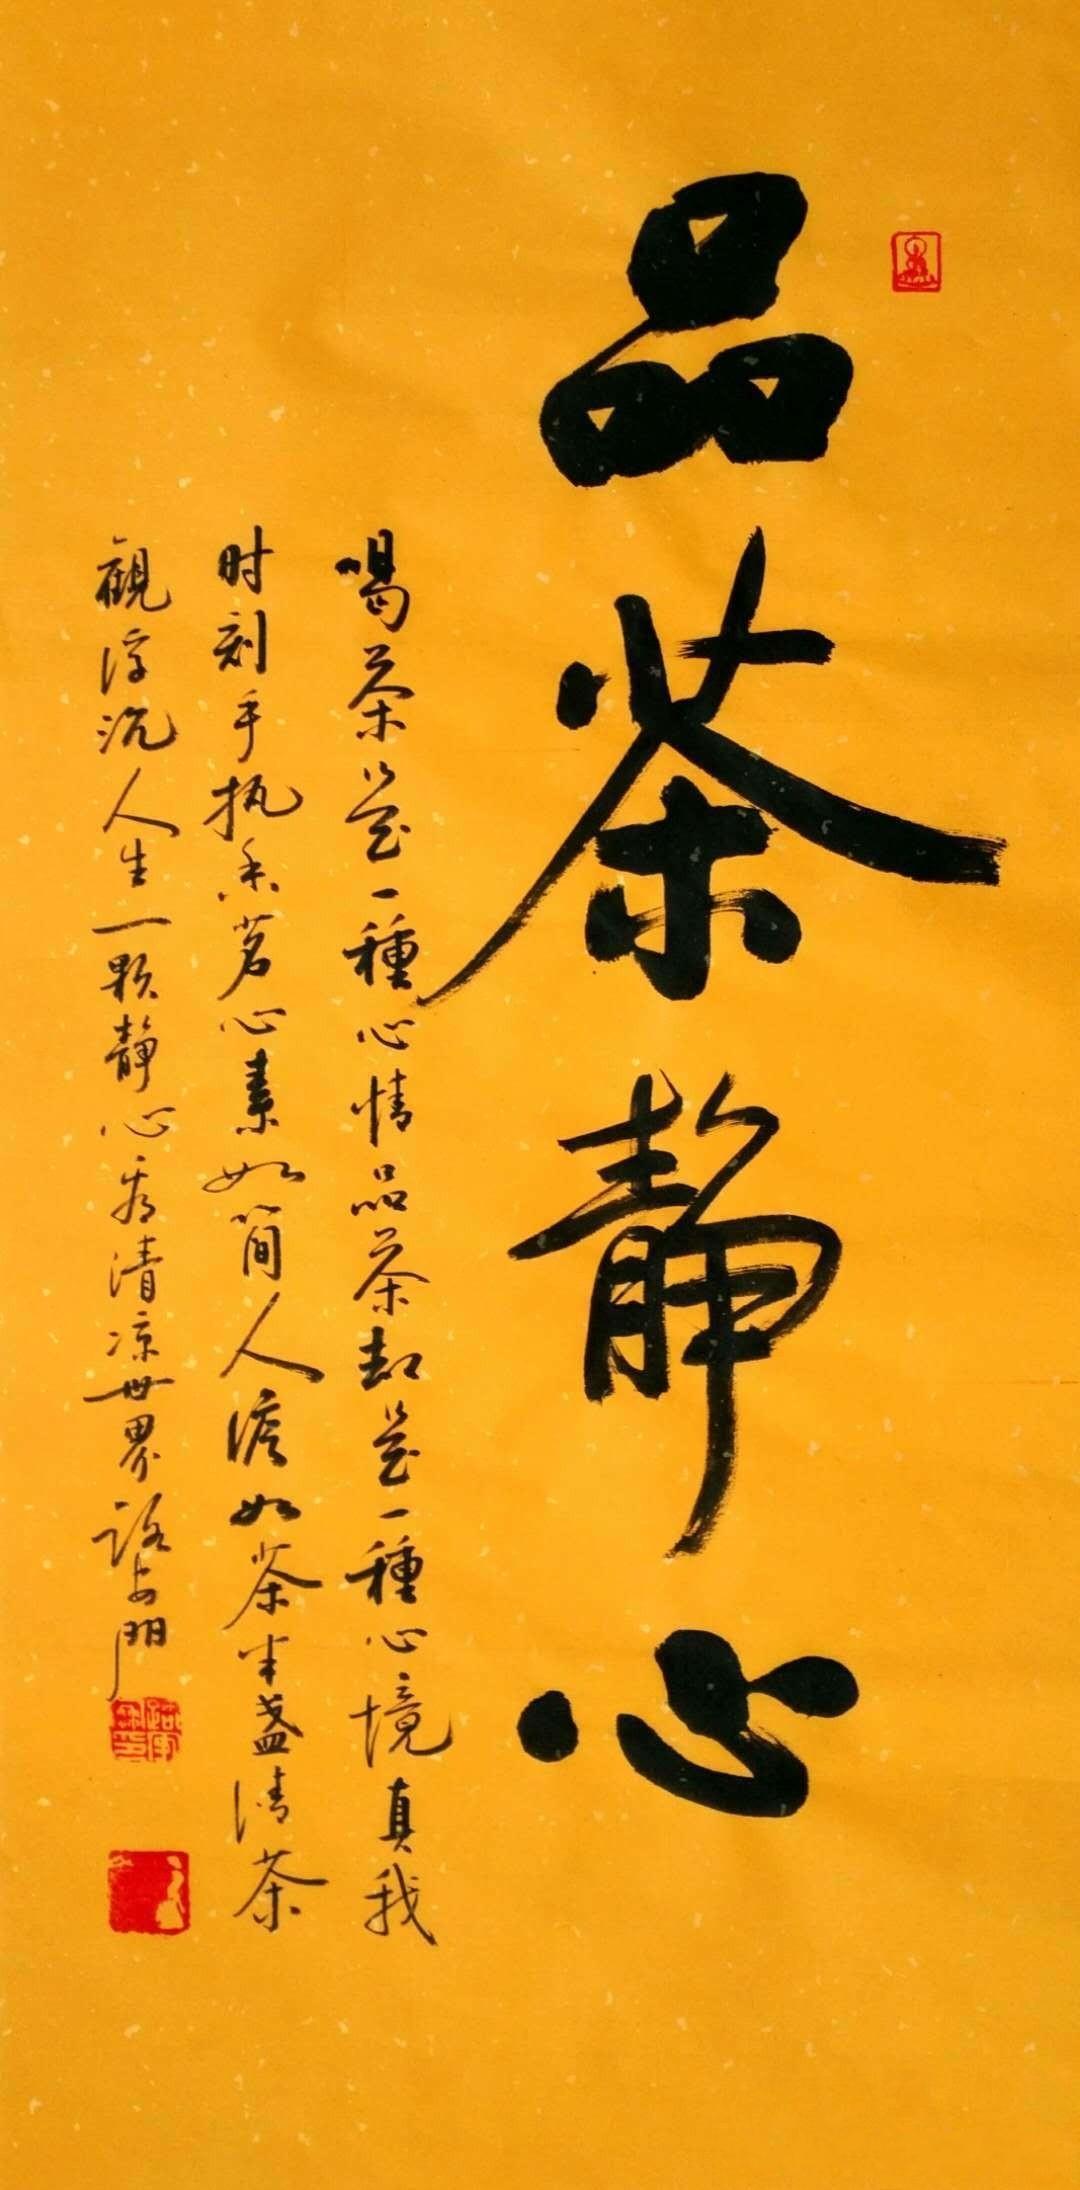 品茶静心
喝茶是一種心情品茶却是一種心境真我
时刻手执香茗心素如简人淡如茶半盏清茶
觀浮沉人生一颗静心看清凉世界